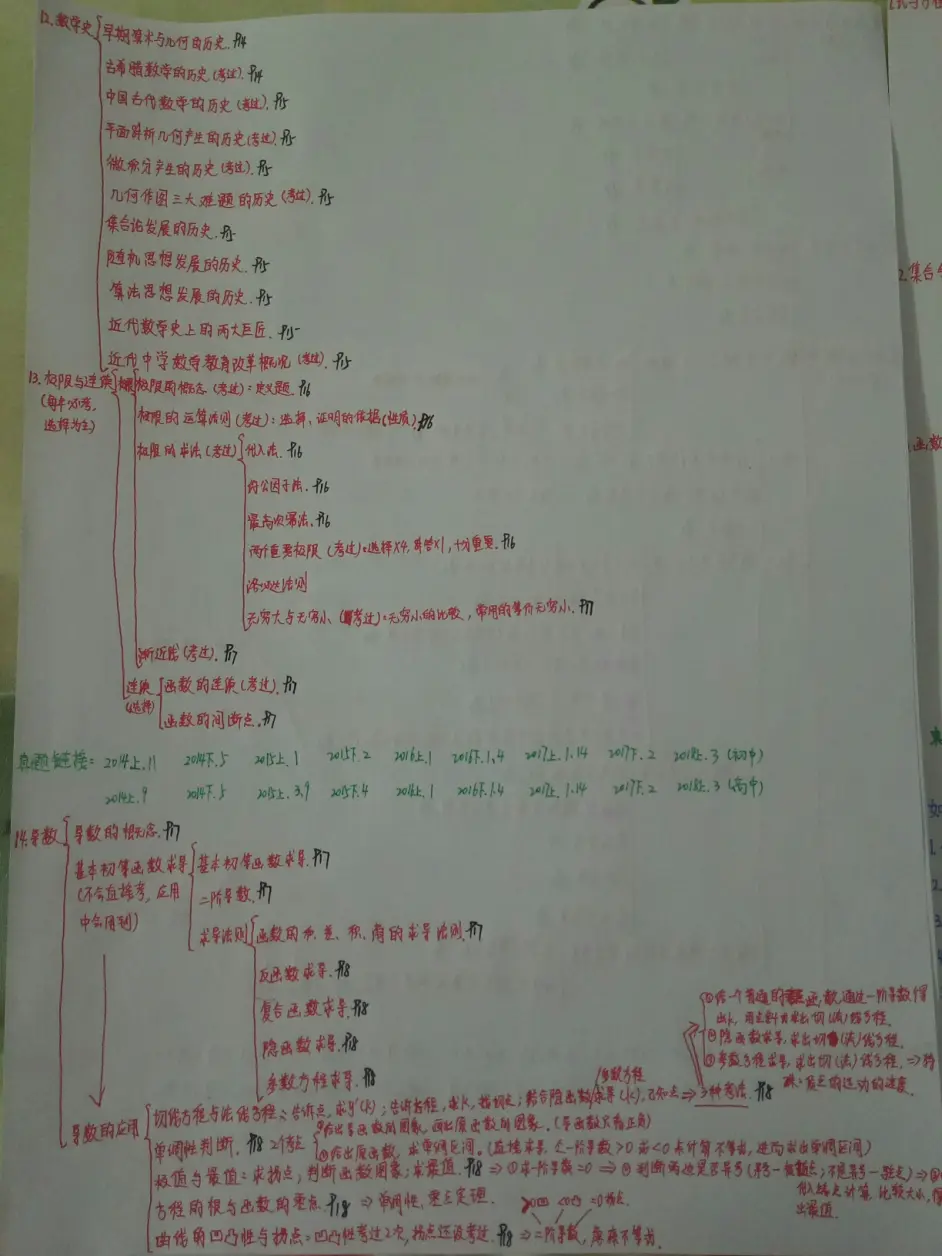 12.数学史
早期算术与几何的历史.P14
古希腊数学的历史(考过).P14
中国古代数学的历史(考过).P15
平面解析几何产生的历史(考过).P15
微积分产生的历史(考过).P15
几何作图三大难题的历史(考过).P15
集合论发展的历史.P15
随机思想发展的历史.P15
算法思想发展的历史.P15
近代数学史上的两大巨匠.P15
近代中学数学教育改革概况(考过).P15
13.极限与连续
(每年必考,
选择为主)
极限的概念(考过):定义题.P16
极限的运算法则(考过):选择、证明的依据(性质).P16
极限的求法(考过)
代入法.P16
约公因子法.P16
最高次幂法.P16
两个重要极限(考过):选择X4,解答X1,十分重要.P16
洛必达法则
无穷大与无穷小(考过):无穷小的比较,常用的等价无穷小.P17
渐近线(考过).P17
连续
(选择)
函数的连续(考过).P17
函数的间断点.P17
真题链接: 2014上.11 2014下.5 2015上.1 2015下.2 2016上.1 2016下.1.4 2017上.1.14 2017下.2 2018上.3 (初中)
2014上.9 2014下.5 2015上.3.9 2015下.4 2016上.1 2016下.1.4 2017上.1.14 2017下.2 2018上.3 (高中)
14.导数
导数的概念.P17
基本初等函数求导
(不会直接考,应用
中会用到)
基本初等函数求导.P17
二阶导数.P17
求导法则
函数的和、差、积、商的求导法则.P17
反函数求导.P18
复合函数求导.P18
隐函数求导.P18
参数方程求导.P18
①给一个普通的函数,通过一阶导数
出k,用点斜式求出切(法)线方程.
②隐函数求导,求出切(法)线方程.
③参数方程求导,求出切(法)线方程.⇒
参数方程
导数的应用
切线方程与法线方程:告诉点,求y'(k);告诉方程,求k,找切点;结合隐函数求导(k),已知点⇒3种考法.P18
①给出导函数的图象,画出原函数的图象.(导函数只看正负)
单调性判断.P18 2个考点
②给出原函数,求单调区间.(直接求导,令一阶导数>0或<0来计算不等式,进而求出单调区间)
极值与最值:求拐点,判断函数图象;求最值.P18⇒①求一阶导数=0⇒②判断两边是否异号
代入端点计算,比较大小,
出最值.
方程的根与函数的零点.P18⇒单调性,零点定理.
>0凹 <0凸 =0拐点.
曲线的凹凸性与拐点:凹凸性考过2次,拐点还没考过.P18⇒二阶导数,
2.集合
函数